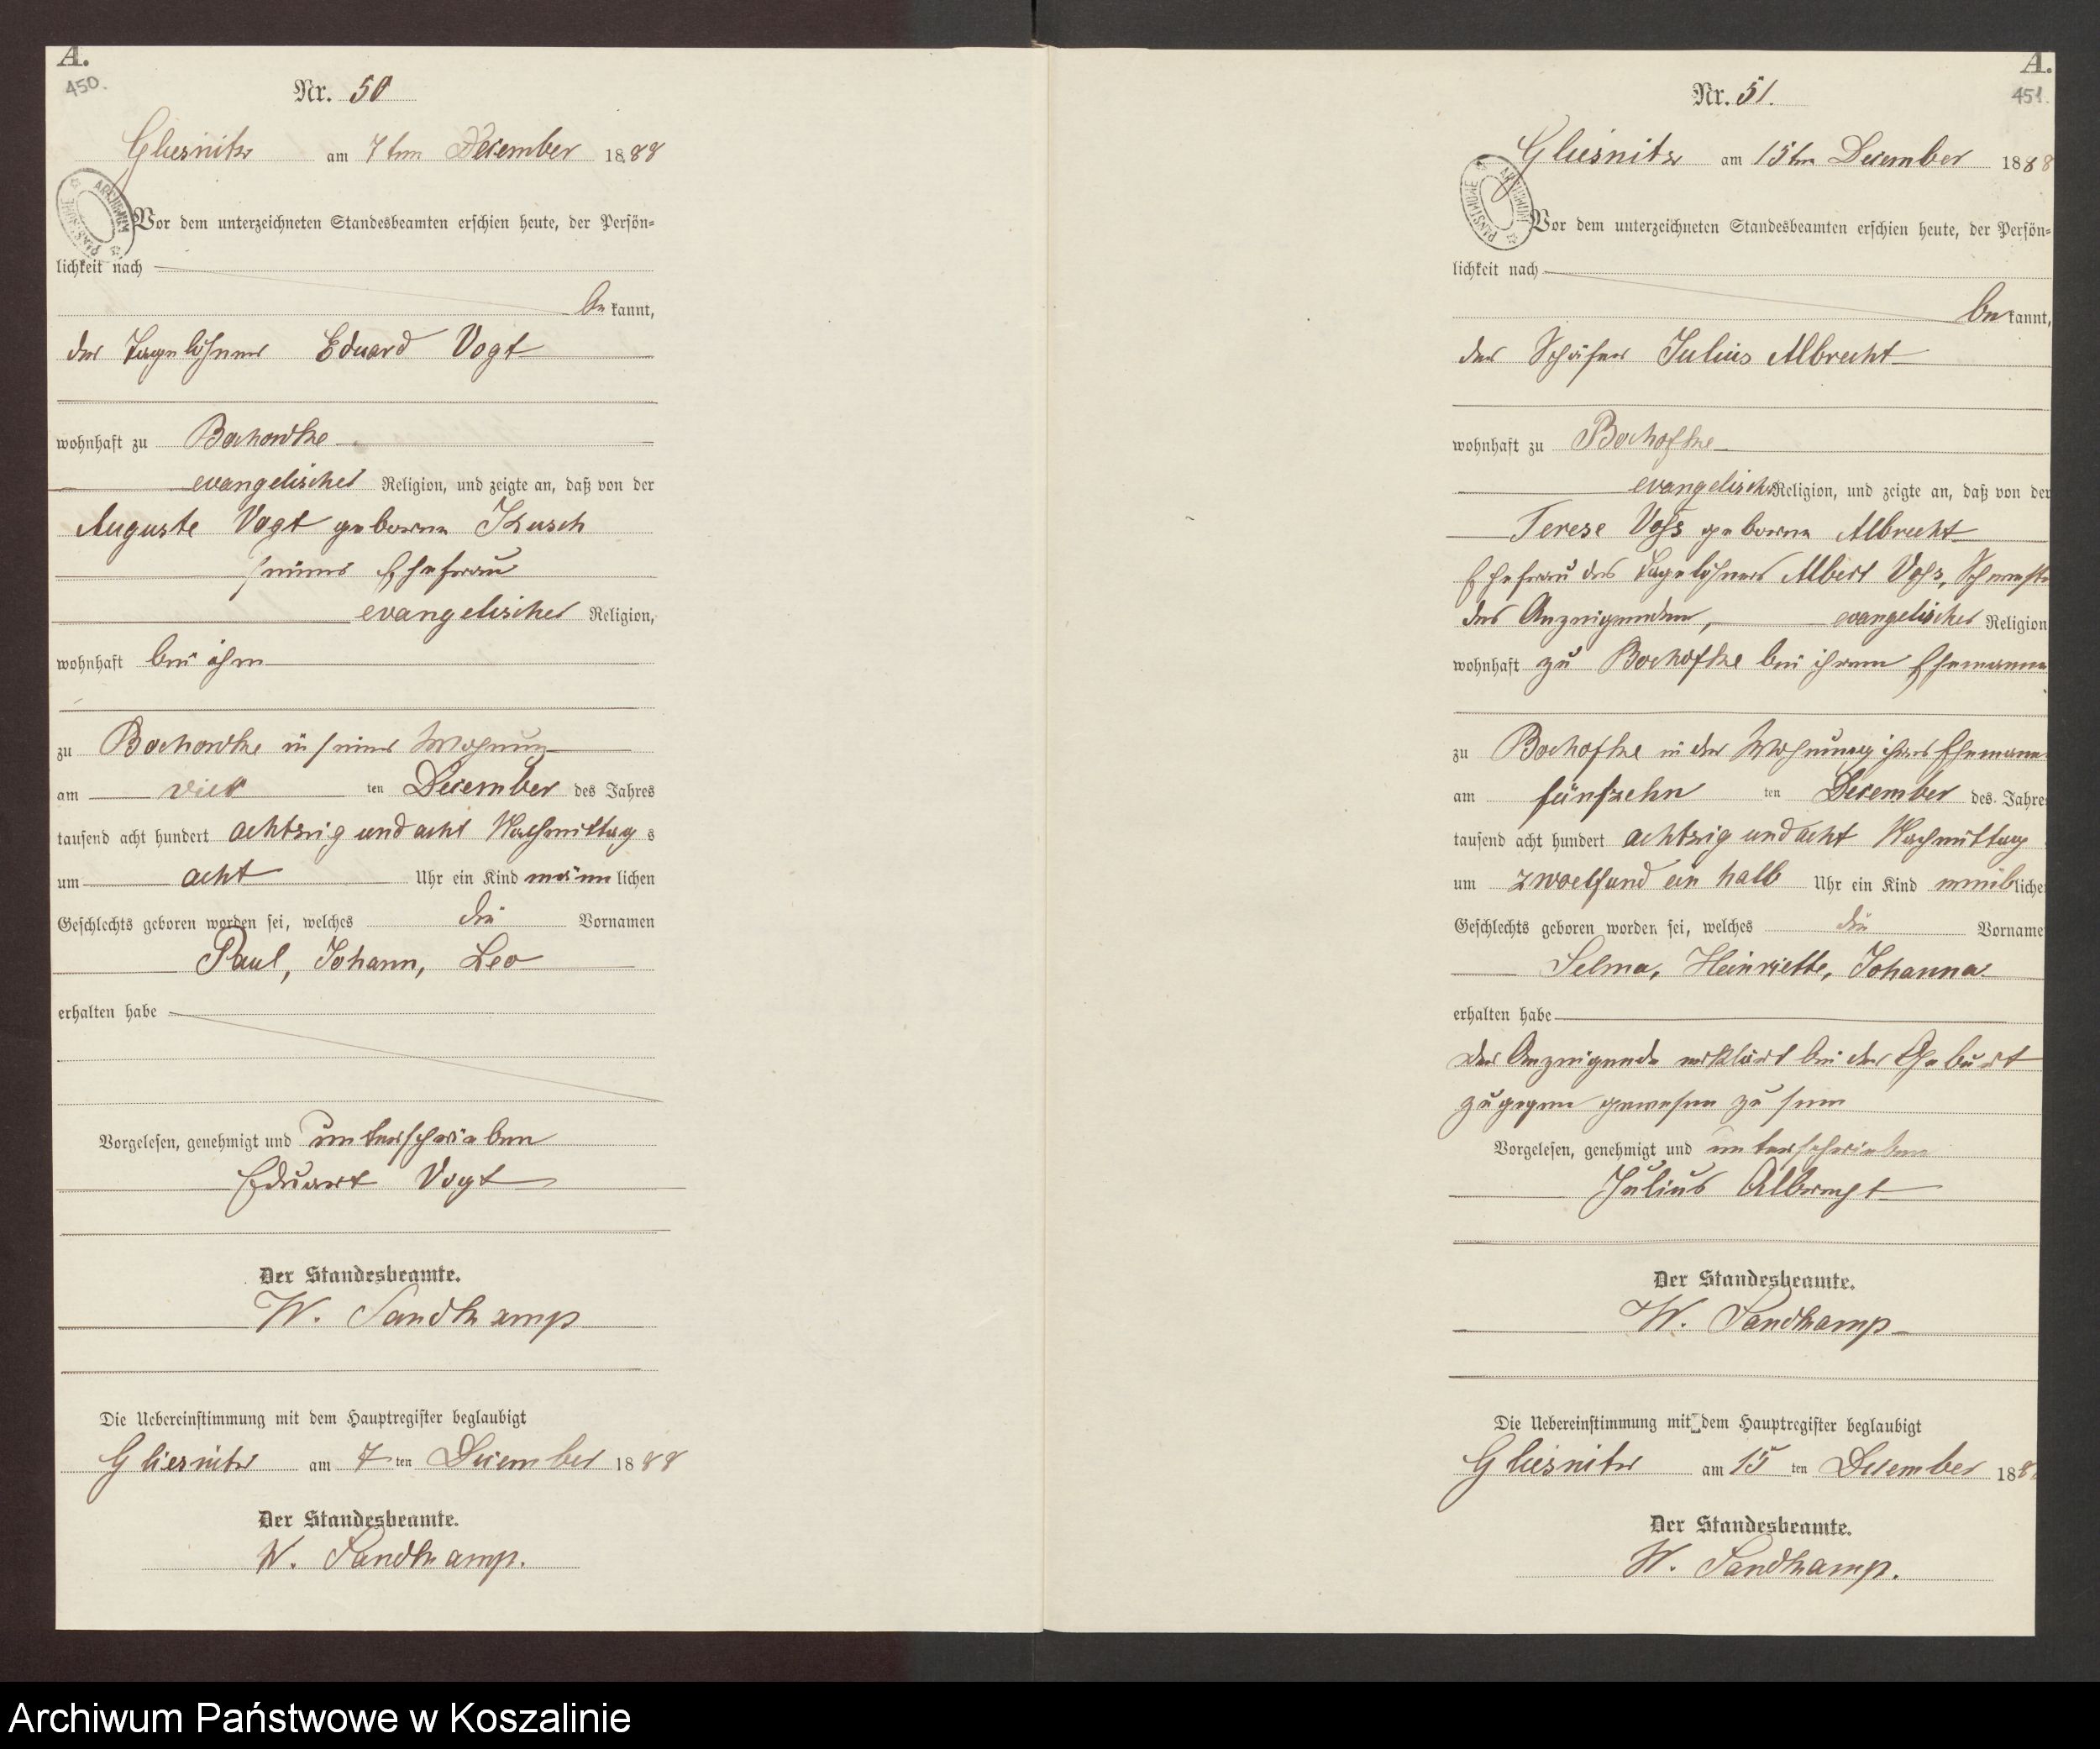 A.
450.
Nr. 50
Gliesnitz am 7ten December 1888
ARCHIWUM PAŃSTWOWE
Vor dem unterzeichneten Standesbeamten erschien heute, der Persön=
lichkeit nach
bekannt,
der Tagelöhner Eduard Vogt
wohnhaft zu Bochowke
evangelischer Religion, und zeigte an, daß von der
Auguste Vogt geborne Kusch
seiner Ehefrau
evangelischer Religion,
wohnhaft bei ihm
zu Bochowke in seiner Wohnung
am vier ten December des Jahres
tausend acht hundert achtzig und acht Nachmittags
um acht Uhr ein Kind männlichen
Geschlechts geboren worden sei, welches die Vornamen
Paul, Johann, Leo
erhalten habe
Vorgelesen, genehmigt und unterschrieben
Eduart Vogt
Der Standesbeamte.
W. Sandkamp
Die Uebereinstimmung mit dem Hauptregister beglaubigt
Gliesnitz am 7ten December 1888
Der Standesbeamte.
W. Sandkamp.
A.
451.
Nr. 51.
Gliesnitz am 15ten December 1888
ARCHIWUM PAŃSTWOWE
Vor dem unterzeichneten Standesbeamten erschien heute, der Persön=
lichkeit nach
bekannt,
der Schäfer Julius Albrecht
wohnhaft zu Bochofke
evangelischer Religion, und zeigte an, daß von der
Terese Voss geborne Albrecht
Ehefrau des Tagelöhners Albert Voss, Schweste
des Anzeigenden, evangelischer Religion
wohnhaft zu Bochofke bei ihrem Ehemanne
zu Bochofke in der Wohnung ihres Ehemann
am fünfzehn ten December des Jahres
tausend acht hundert achtzig und acht Nachmittag
um zwoelfund ein halb Uhr ein Kind weibliche
Geschlechts geboren worden sei, welches die Vorname
Selma, Heinriette, Johanna
erhalten habe
Der Anzeigende erklärt bei der Geburt
zugegen gewesen zu sein
Vorgelesen, genehmigt und unterschrieben
Julius Albrecht
Der Standesbeamte.
W. Sandkamp
Die Uebereinstimmung mit dem Hauptregister beglaubigt
Gliesnitz am 15ten December 188
Der Standesbeamte.
W. Sandkamp.
Archiwum Państwowe w Koszalinie